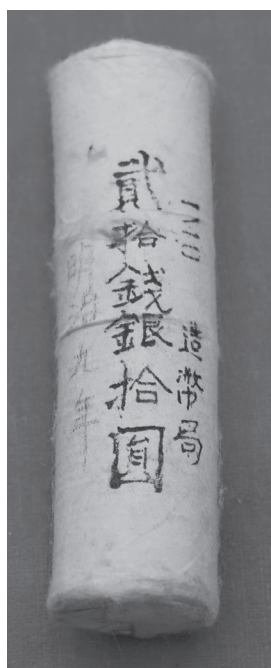 造幣局
貳拾錢銀拾圓
明治九年